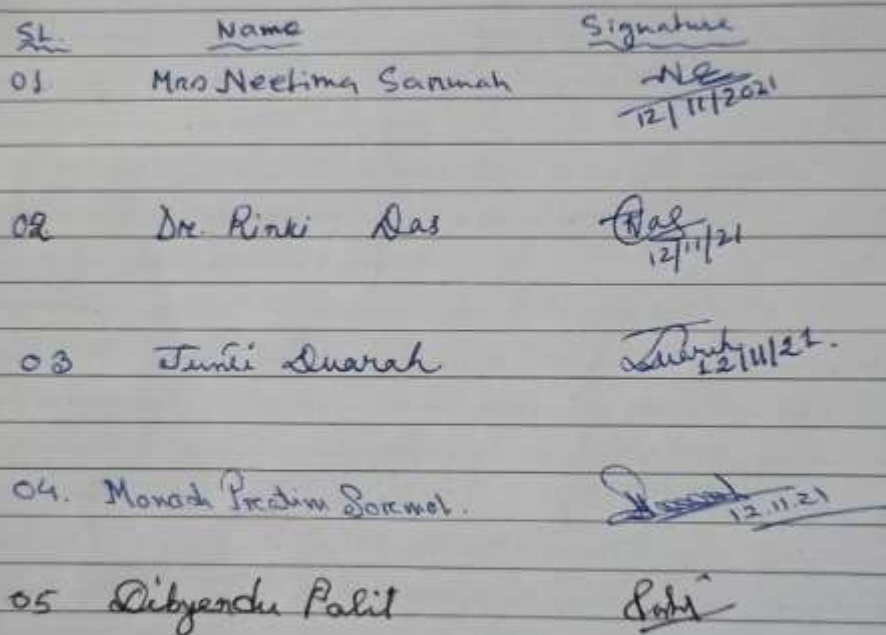 SL. Name Signature
01 Mrs Neelima Sarmah
12/11/2021
02 Dr. Rinki Das Das
12/11/21
03 Junti Duarah Duarah 12/11/21.
04. Pratim
12.11.21
05 Dibyendu Palit